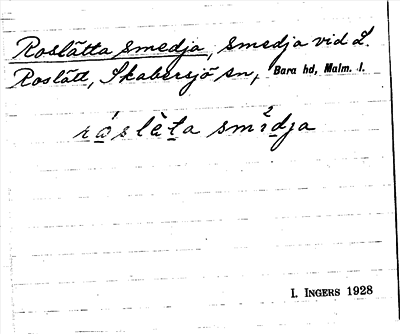 Roslätta smedja, smedja vid L.
Roslätt, Skabersjö sn, Bara hd, Malm. l.
róslèta smìdja
I. INGERS 1928